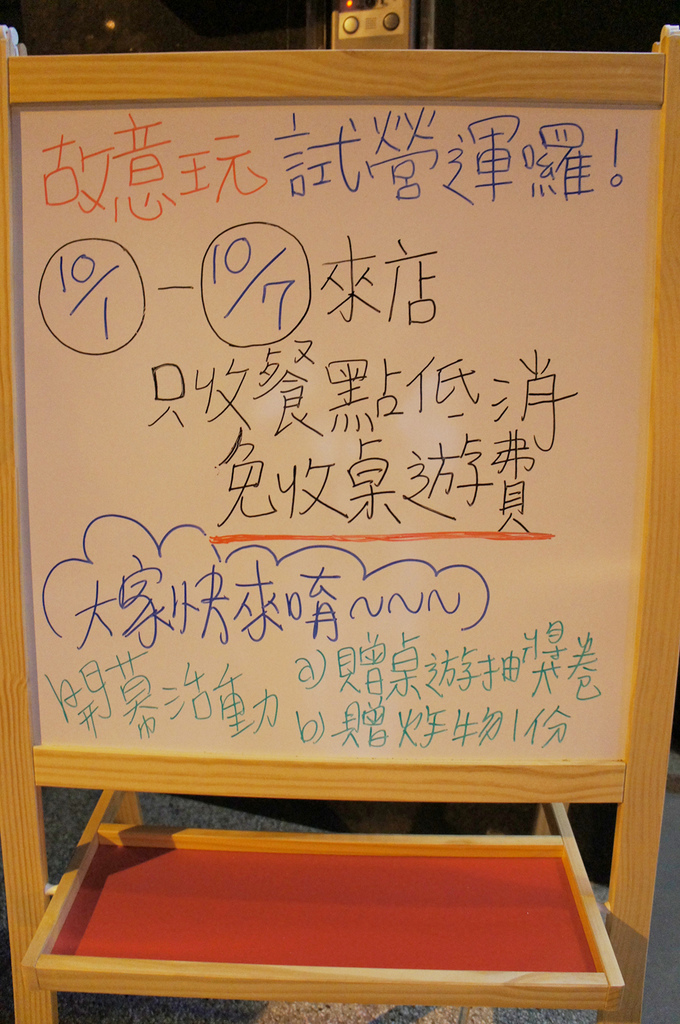 故意玩 試營運囉!
10/1 — 10/7 來店
只收餐點低消
免收桌遊費
大家快來唷~~~
開幕活動
a) 贈桌遊抽獎卷
b) 贈炸物1份